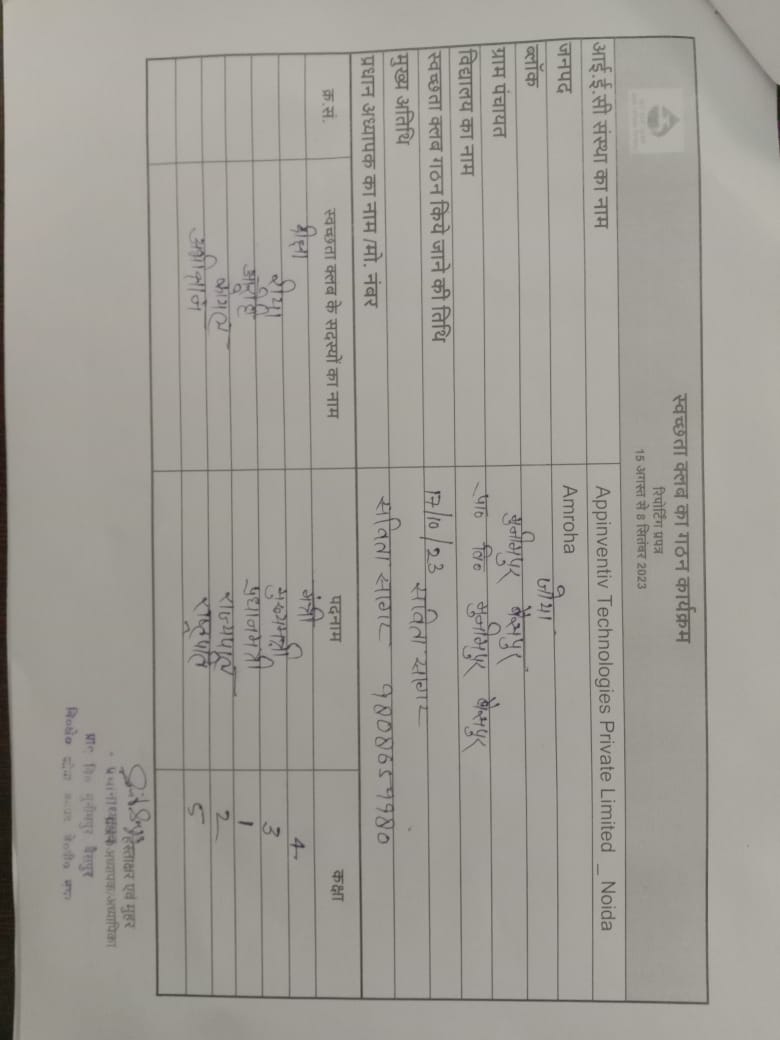 स्वच्छता क्लब का गठन कार्यक्रम
रिपोर्टिंग प्रपत्र
15 अगस्त से 8 सितंबर 2023
आई.ई.सी संस्था का नाम Appinventiv Technologies Private Limited _ Noida
जनपद Amroha
ब्लॉक जोया
ग्राम पंचायत मुनीमपुर बैसपुर
विद्यालय का नाम प्रा० वि० मुनीमपुर बैसपुर
स्वच्छता क्लब गठन किये जाने की तिथि 17/10/23
मुख्य अतिथि सविता सागर
प्रधान अध्यापक का नाम /मो. नंबर सविता सागर
क्र.सं. स्वच्छता क्लब के सदस्यों का नाम पदनाम कक्षा
मंत्री 4
मुख्यमंत्री 3
प्रधानमंत्री 1
राज्यपाल 2
राष्ट्रपति 5
हस्ताक्षर एवं मुहर
अध्यापक/अध्यापिका
प्रा० वि० मुनीमपुर बैसपुर